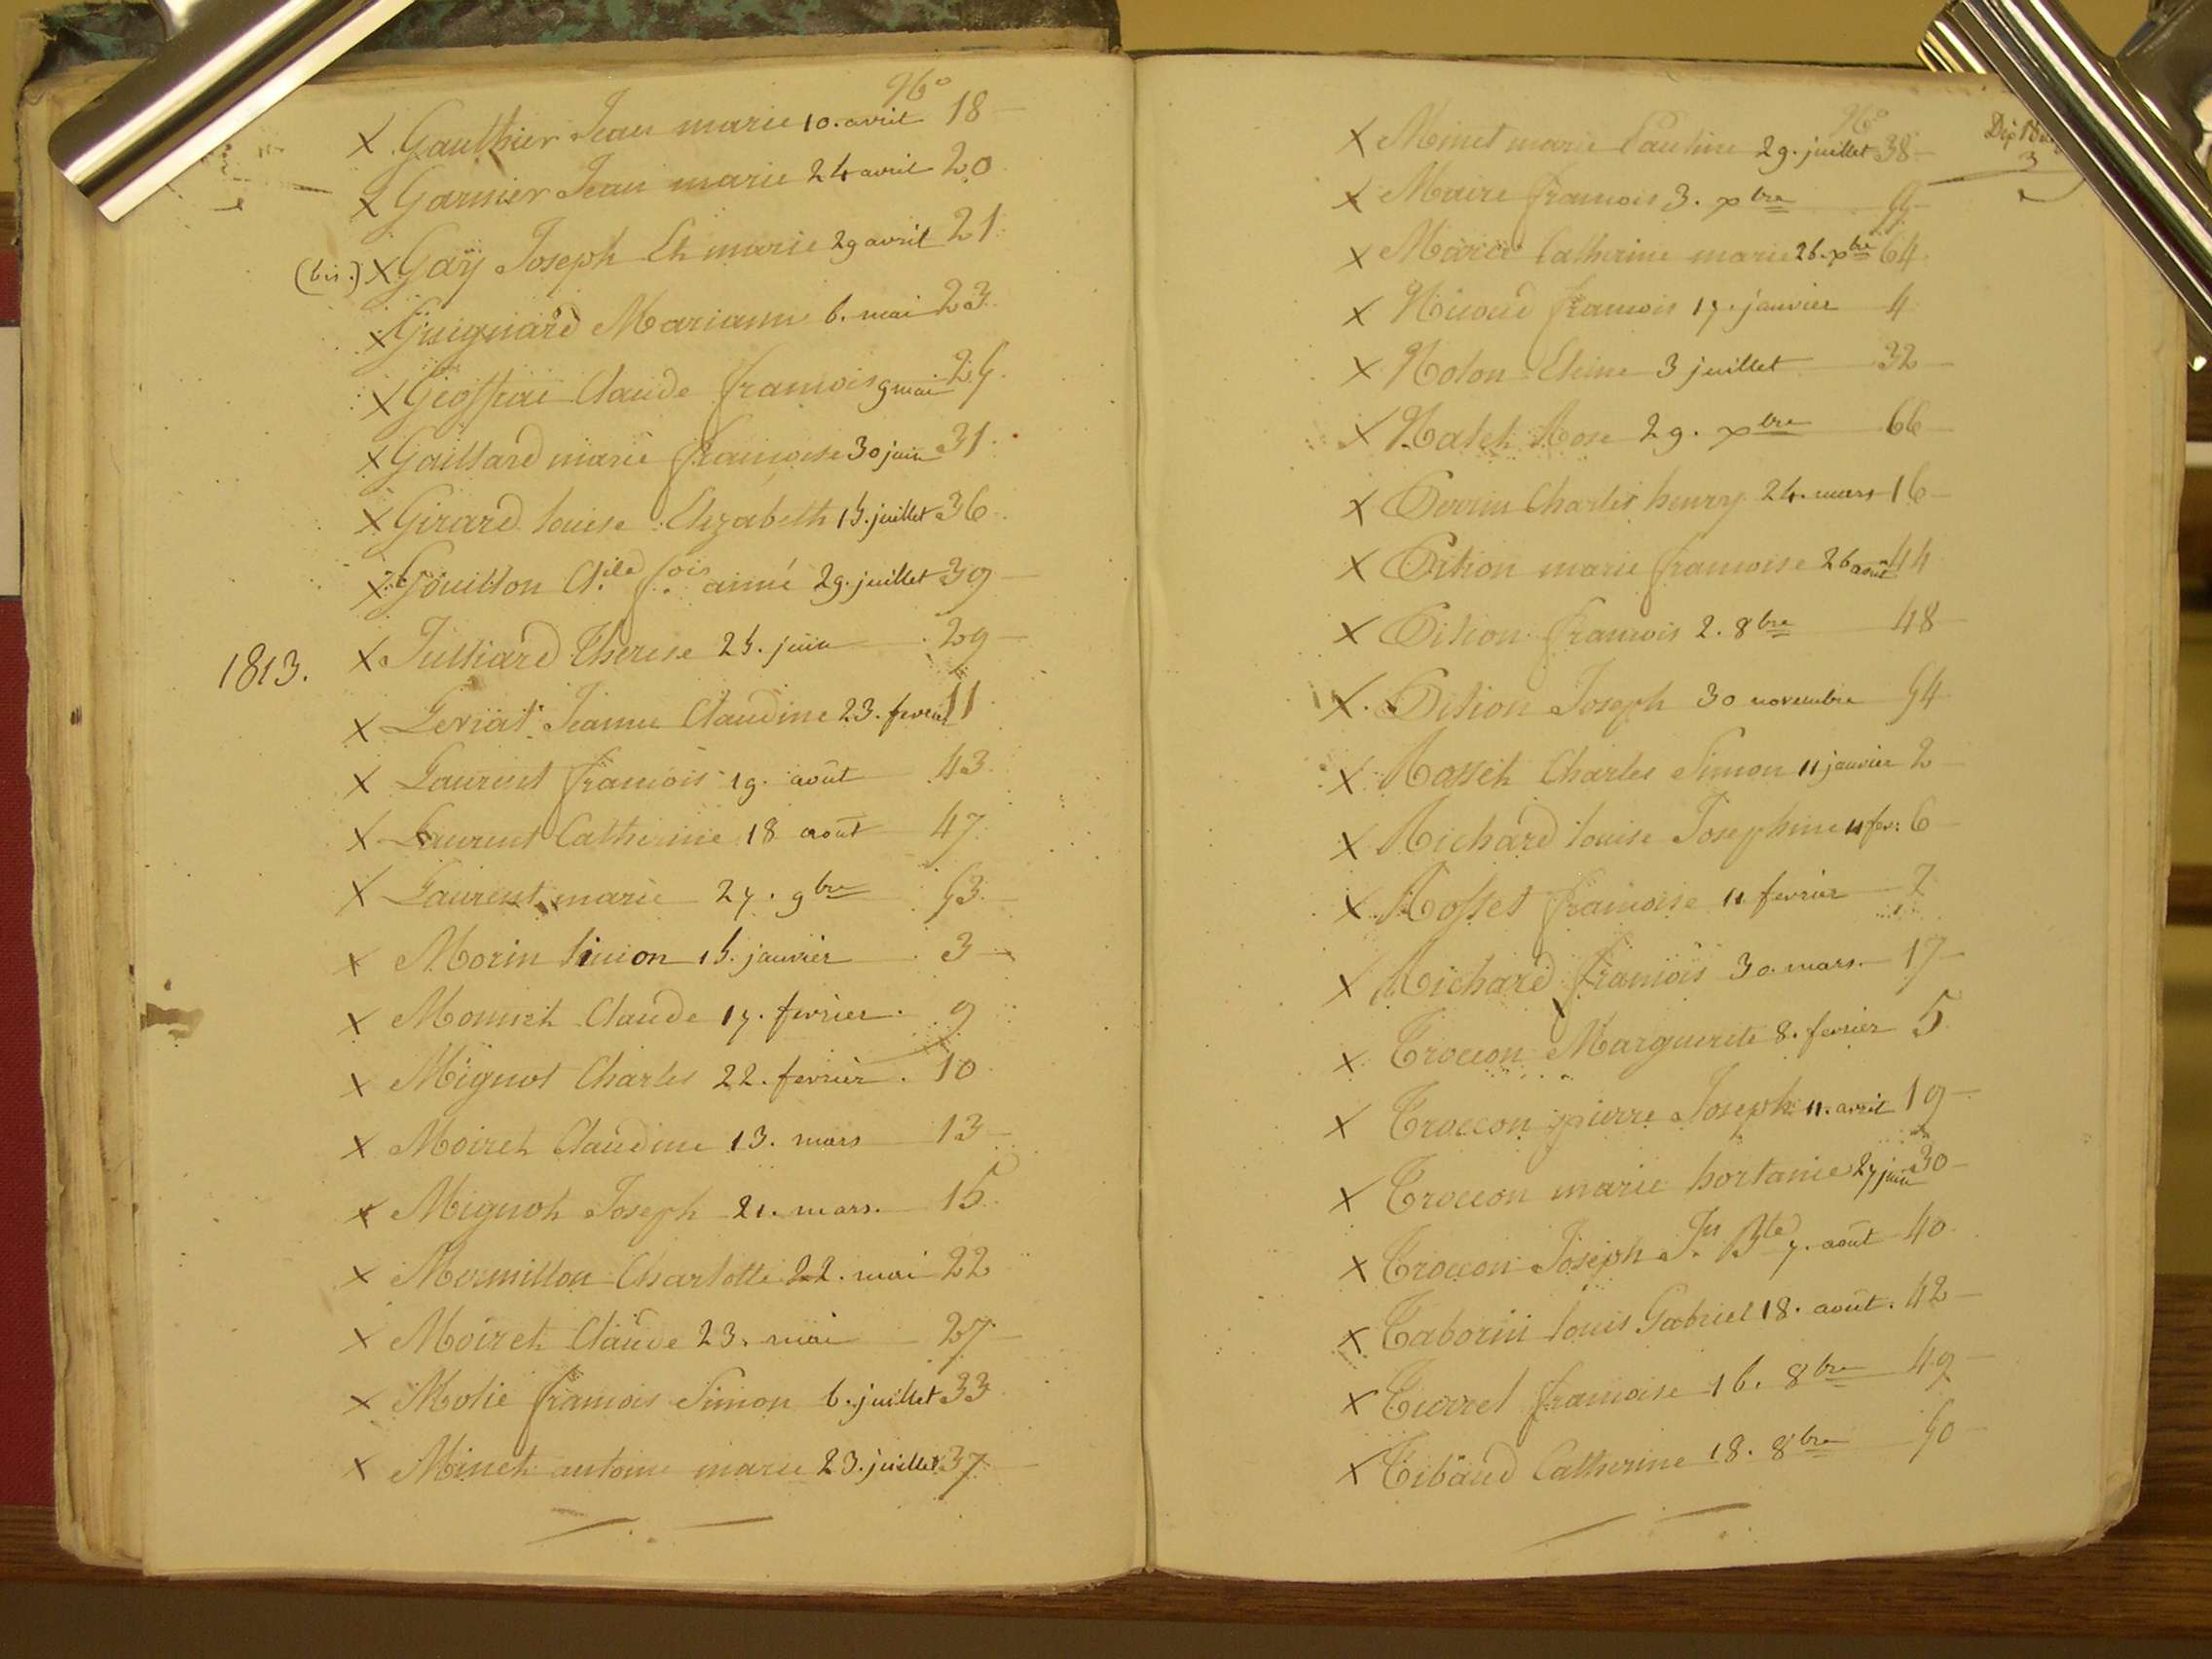 N°
X Gaulthier Jean marie 10. avril 18
X Garnier Jean marie 24 avril 20
(bis.) X Gaÿ Joseph Et marie 29 avril 21
X Guignard Mariann 6. mai 23
X Geoffrai Claude francois 9 mai 24
X Gaillard marie francoise 30 juin 31
X Girard louise Elizabeth 15. juillet 36
X Gouillon f.ois aimé 29. juillet 39
1813. X Julliard Therese 25. juin 29
X Jeanne Claudine 23. fevrier 11
X Laurent francois 19. août 43
X Laurent Catherine 18 août 47
X Laurent marie 27. 9bre 53
X Morin Simon 15. janvier 3
X Monnet Claude 17. fevrier. 9
X Mignot Charles 22. fevrier. 10
X Moiret Claudine 13. mars 13
X Mignot Joseph 21. mars. 15
X Mermillon Charlotte 22. mai 22
X Moiret Claude 23. mai 27
X Molie francois Simon 6. juillet 33
X Minet antoine marie 23. juillet 37
N°
X Minet marie Pauline 29. juillet 38
X Maire francois 3. xbre
X Catherine marie 26. xbre 64
X Nicoud francois 17. janvier 4
X Etiene 3 juillet 32
X Rose 29. xbre 66
X Perrin Charles henry 24. mars 16
X Pition marie francoise 26 août 44
X Pition francois 2. 8bre 48
X Pition Joseph 30 novembre 54
X Rosset Charles Simon 11 janvier 2
X Richard louise Josephine 11 fev: 6
X Rosset francoise 11 fevrier 7
X Richard francois 30. mars. 17
X Troccon Marguerite 8. fevrier 5
X Troccon pierre Joseph 11. avril 19
X Troccon marie hortanie 27 juin 30
X Troccon Joseph Jn Bte 7. août 40
X Taborin louis Gabriel 18. août. 42
X Turrel francoise 16. 8bre 49
X Tibaud Catherine 18. 8bre 50